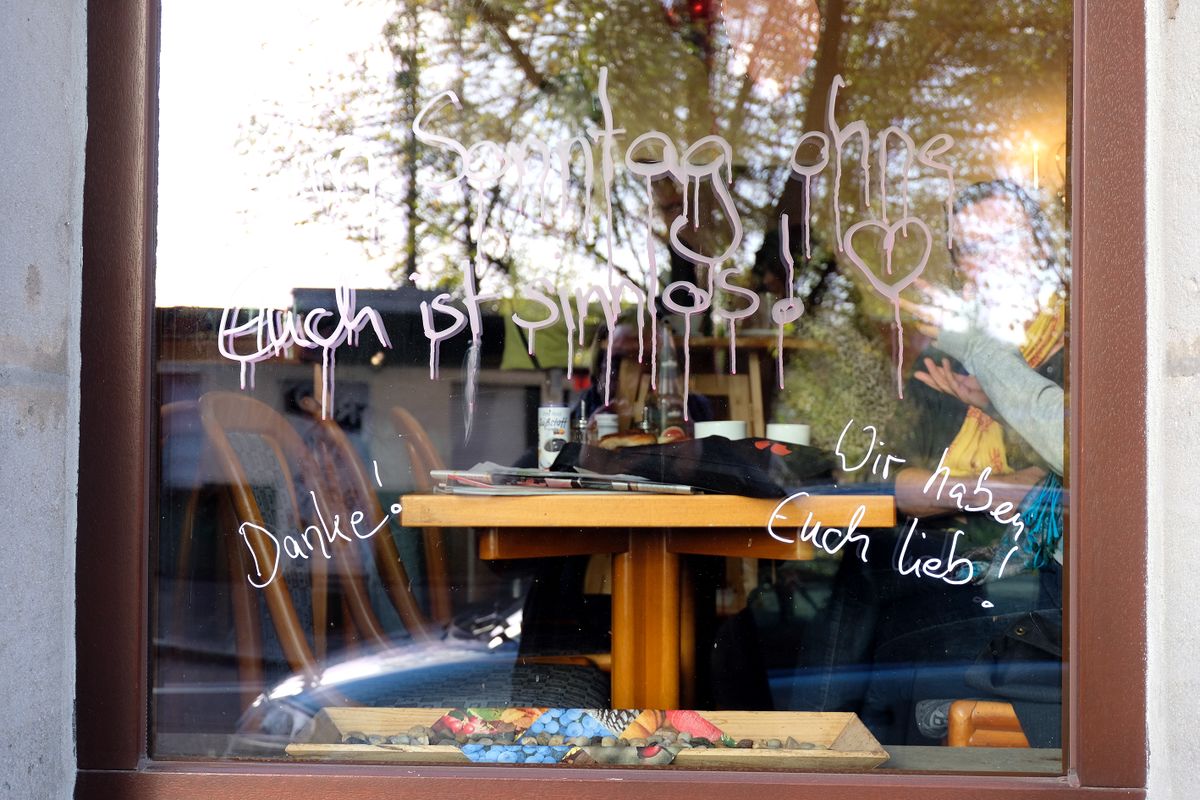 Ein Sonntag ohne
Euch ist sinnlos!
Danke!
Wir haben
Euch lieb!